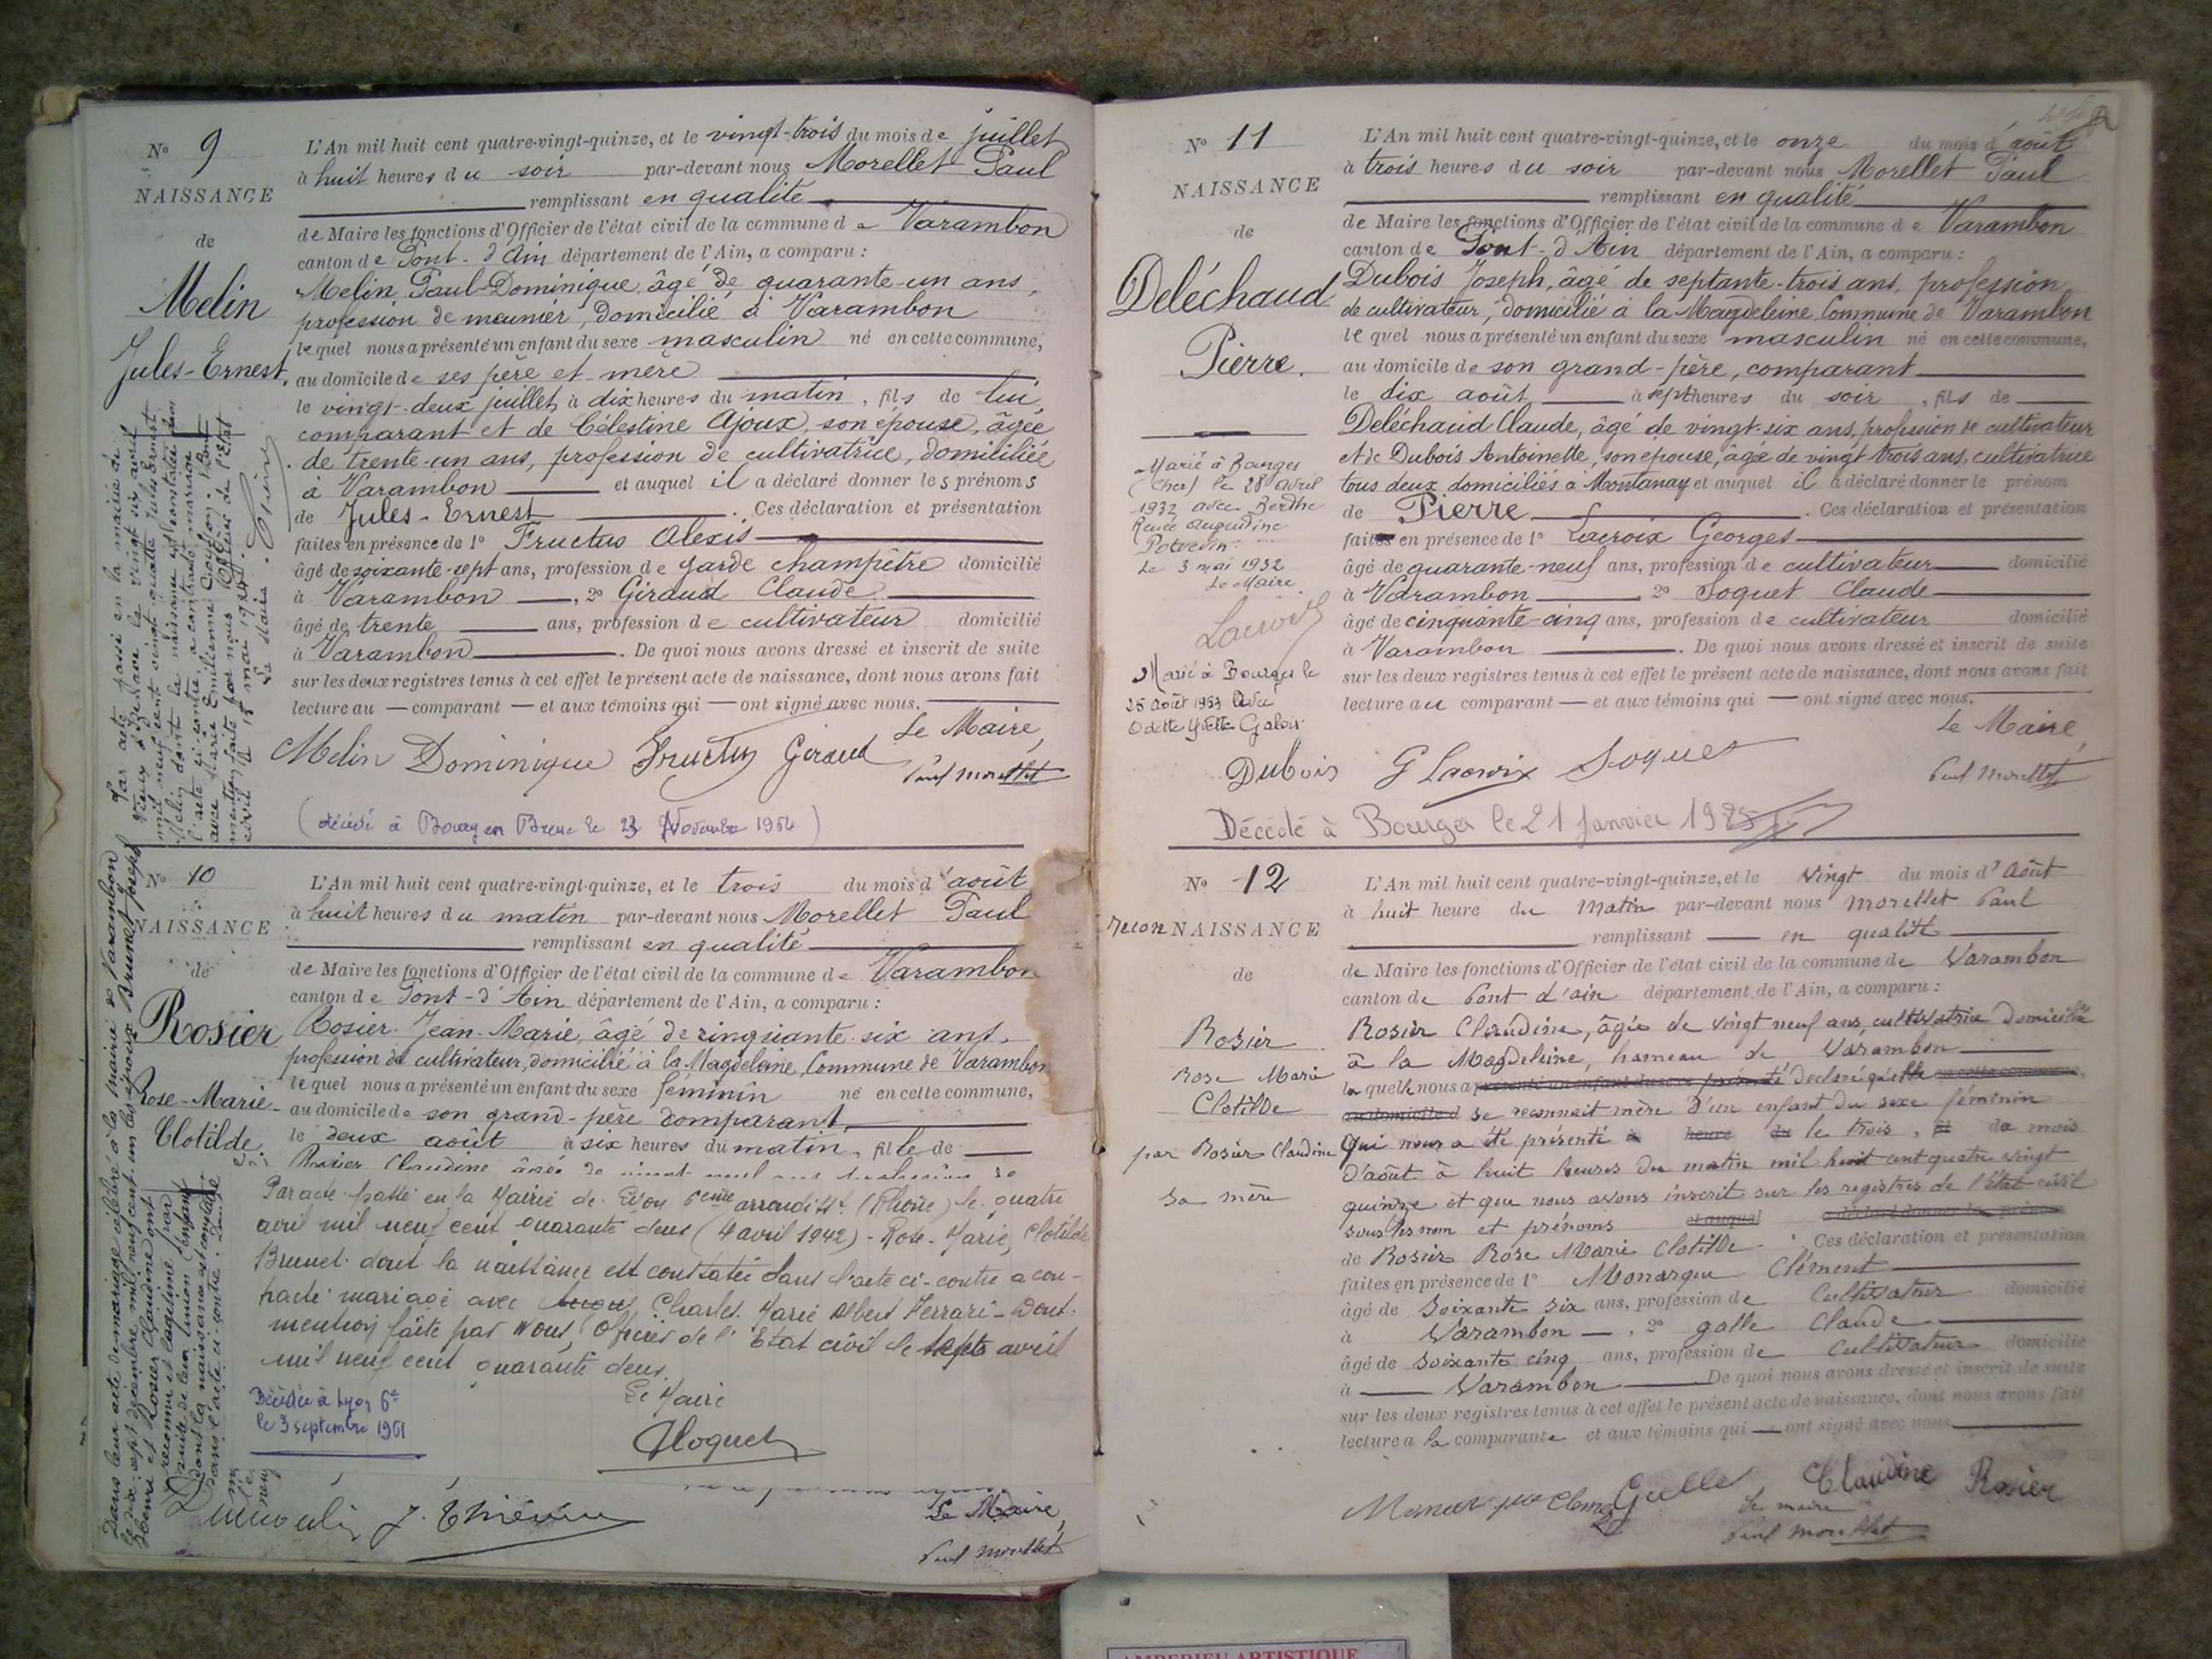 N° 9
NAISSANCE
de
Melin
Jules-Ernest.
L'An mil huit cent quatre-vingt-quinze, et le vingt-trois du mois de juillet
à huit heures du soir par-devant nous Morellet Paul
remplissant en qualité
de Maire les fonctions d'Officier de l'état civil de la commune de Varambon
canton de Pont-d'Ain département de l'Ain, a comparu :
Melin Paul-Dominique âgé de quarante-un ans,
profession de meunier, domicilié à Varambon
lequel nous a présenté un enfant du sexe masculin né en cette commune,
au domicile de ses père et mère
le vingt-deux juillet, à dix heures du matin, fils de lui,
comparant et de Célestine Ajoux, son épouse, âgée
de trente-un ans, profession de cultivatrice, domililiée
à Varambon et auquel il a déclaré donner les prénoms
de Jules-Ernest. Ces déclaration et présentation
faites en présence de 1° Fructus Alexis
âgé de soixante-sept ans, profession de garde champêtre domicilié
à Varambon, 2° Giraud Claude
âgé de trente ans, profession de cultivateur domicilié
à Varambon. De quoi nous avons dressé et inscrit de suite
sur les deux registres tenus à cet effet le présent acte de naissance, dont nous avons fait
lecture au comparant et aux témoins qui ont signé avec nous.
Le Maire,
Melin Dominique Fructus Giraud
Paul Morellet
(décédé à Bourg en Bresse le 23 Novembre 1954)
Par acte passé en la mairie de
mil neuf cent vingt quatre Jules Ernest
Melin dont la naissance est constatée dans
l'acte ci-contre, a contracté mariage
avec Marie Emilienne Goiffon. Dont
mention faite par nous Officier de l'Etat
civil le 15 mai 1924.
Le Maire
N° 10
NAISSANCE
de
Rosier
Rose-Marie-
Clotilde.
L'An mil huit cent quatre-vingt-quinze, et le trois du mois d'août
à huit heures du matin par-devant nous Morellet Paul
remplissant en qualité
de Maire les fonctions d'Officier de l'état civil de la commune de Varambon
canton de Pont-d'Ain département de l'Ain, a comparu :
Rosier Jean-Marie, âgé de cinquante-six ans,
profession de cultivateur, domicilié à la Magdeleine, Commune de Varambon
lequel nous a présenté un enfant du sexe féminin né en cette commune,
au domicile de son grand-père comparant,
le deux août à six heures du matin, fille de
Rosier Claudine âgée de vingt-neuf ans profession de
Par acte passé en la Mairie de Lyon 6eme arrondist (Rhône) le quatre
avril mil neuf cent quarante deux (4 avril 1942) - Rose-Marie, Clotilde
Brunet dont la naissance est constatée dans l'acte ci-contre a con-
tracté mariage avec Charles Marie Albert Ferrari - Dont
mention faite par Nous, Officier de l'Etat civil le sept avril
mil neuf cent quarante deux.
Le Maire
Décédée à Lyon 6e
le 3 septembre 1961
Dans leur acte de mariage célébré à la mairie de Varambon
le dix-sept décembre mil neuf cent un les sieurs Brunet Joseph
Henri et Rosier Claudine ont
reconnu et légitimé par
suite de leur union l'enfant
dont la naissance est constatée
dans l'acte ci-contre.
Dumoulin J. Thiévin
Le Maire,
Paul Morellet
N° 11
NAISSANCE
de
Deléchaud
Pierre.
Marié à Bourges
(Cher) le 28 avril
1932 avec Berthe
Renée Augustine
Potvevin
Le 3 mai 1932
Le Maire
Lacroix
Marié à Bourges le
25 Août 1953 avec
Odette Yvette Galois
L'An mil huit cent quatre-vingt-quinze, et le onze du mois d'août
à trois heures du soir par-devant nous Morellet Paul
remplissant en qualité
de Maire les fonctions d'Officier de l'état civil de la commune de Varambon
canton de Pont-d'Ain département de l'Ain, a comparu :
Dubois Joseph, âgé de septante-trois ans, profession
de cultivateur, domicilié à la Magdeleine Commune de Varambon
lequel nous a présenté un enfant du sexe masculin né en cette commune,
au domicile de son grand-père, comparant
le dix août à sept heures du soir, fils de
Deléchaud Claude, âgé de vingt-six ans, profession de cultivateur
et de Dubois Antoinette, son épouse, âgée de vingt-trois ans, cultivatrice
tous deux domiciliés à Montanay et auquel il a déclaré donner le prénom
de Pierre. Ces déclaration et présentation
faites en présence de 1° Lacroix Georges
âgé de quarante-neuf ans, profession de cultivateur domicilié
à Varambon 2° Soquet Claude
âgé de cinquante-cinq ans, profession de cultivateur domicilié
à Varambon. De quoi nous avons dressé et inscrit de suite
sur les deux registres tenus à cet effet le présent acte de naissance, dont nous avons fait
lecture au comparant et aux témoins qui ont signé avec nous.
Le Maire,
Dubois G Lacroix Soquet
Paul Morellet
Décédé à Bourges le 21 Janvier 1985
N° 12
recon NAISSANCE
de
Rosier
Rose Marie
Clotilde
par Rosier Claudine
sa mère
L'An mil huit cent quatre-vingt-quinze, et le vingt du mois d'Août
à huit heure du matin par-devant nous Morellet Paul
remplissant en qualité
de Maire les fonctions d'Officier de l'état civil de la commune de Varambon
canton de Pont d'ain département de l'Ain, a comparu :
Rosier Claudine, âgée de vingt neuf ans, cultivatrice domiciliée
à la Magdeleine, hameau de Varambon
la quelle nous a présenté un enfant du sexe déclaré qu'elle en cette commune,
au domicile d se reconnait mère d'un enfant du sexe féminin
qui nous a été présenté à heure du le trois, fil du mois
d'août à huit heures du matin mil huit cent quatre vingt
quinze et que nous avons inscrit sur les registres de l'Etat civil
sous les nom et prénoms et auquel a déclaré donner les prénoms
de Rosier Rose Marie Clotilde. Ces déclaration et présentation
faites en présence de 1° Monarque Clément
âgé de soixante six ans, profession de Cultivateur domicilié
à Varambon, 2° galle Claude
âgé de soixante cinq ans, profession de Cultivateur domicilié
à Varambon De quoi nous avons dressé et inscrit de suite
sur les deux registres tenus à cet effet le présent acte de naissance, dont nous avons fait
lecture a la comparante et aux témoins qui ont signé avec nous
Galle Claudine Rosier
le maire
Paul Morellet
AMBERIEU ARTISTIQUE